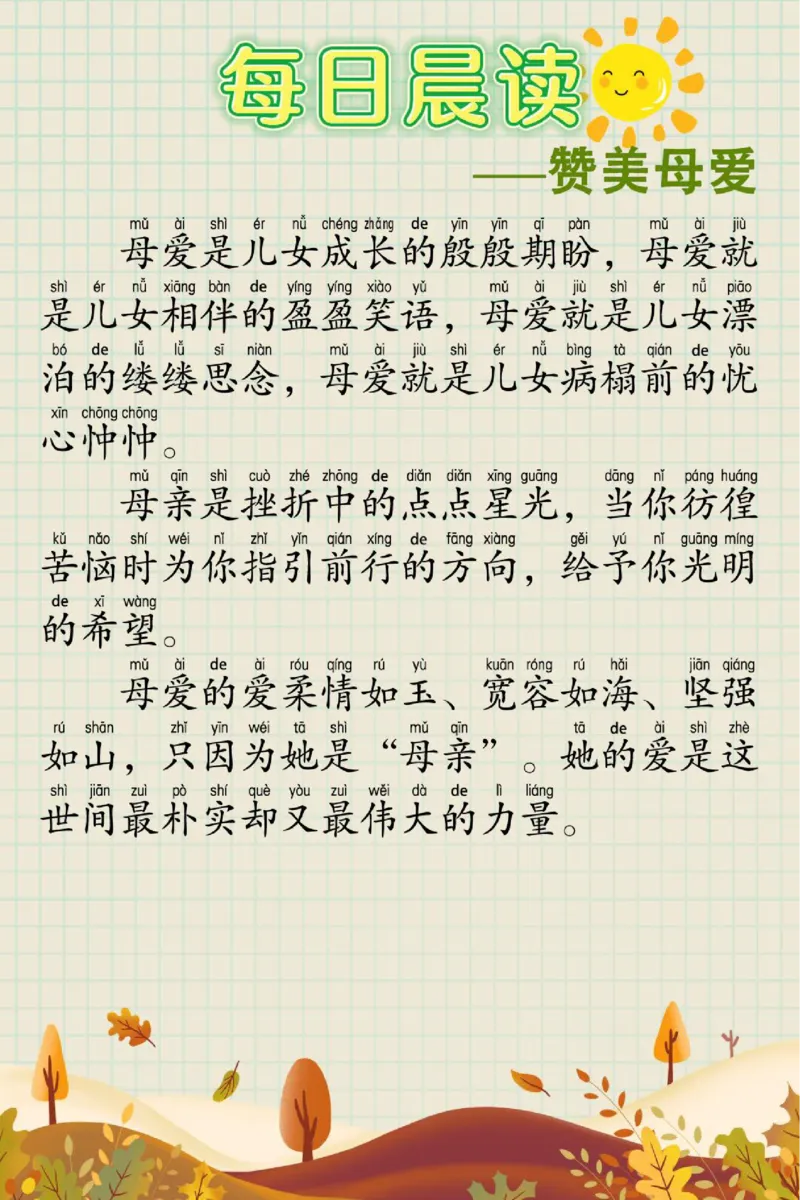 每日晨读
——赞美母爱
mǔ ài shì ér nǚ chéng zhǎng de yīn yīn qī pàn mǔ ài jiù
母爱是儿女成长的殷殷期盼，母爱就
shì ér nǚ xiāng bàn de yíng yíng xiào yǔ mǔ ài jiù shì ér nǚ piāo
是儿女相伴的盈盈笑语，母爱就是儿女漂
bó de lǚ lǚ sī niàn mǔ ài jiù shì ér nǚ bìng tà qián de yōu
泊的缕缕思念，母爱就是儿女病榻前的忧
xīn chōng chōng
心忡忡。
mǔ qīn shì cuò zhé zhōng de diǎn diǎn xīng guāng dāng nǐ páng huáng
母亲是挫折中的点点星光，当你彷徨
kǔ nǎo shí wéi nǐ zhǐ yǐn qián xíng de fāng xiàng gěi yú nǐ guāng míng
苦恼时为你指引前行的方向，给予你光明
de xī wàng
的希望。
mǔ ài de ài róu qíng rú yù kuān róng rú hǎi jiān qiáng
母爱的爱柔情如玉、宽容如海、坚强
rú shān zhǐ yīn wéi tā shì mǔ qīn tā de ài shì zhè
如山，只因为她是“母亲”。她的爱是这
shì jiān zuì pò shí què yòu zuì wěi dà de lì liáng
世间最朴实却又最伟大的力量。